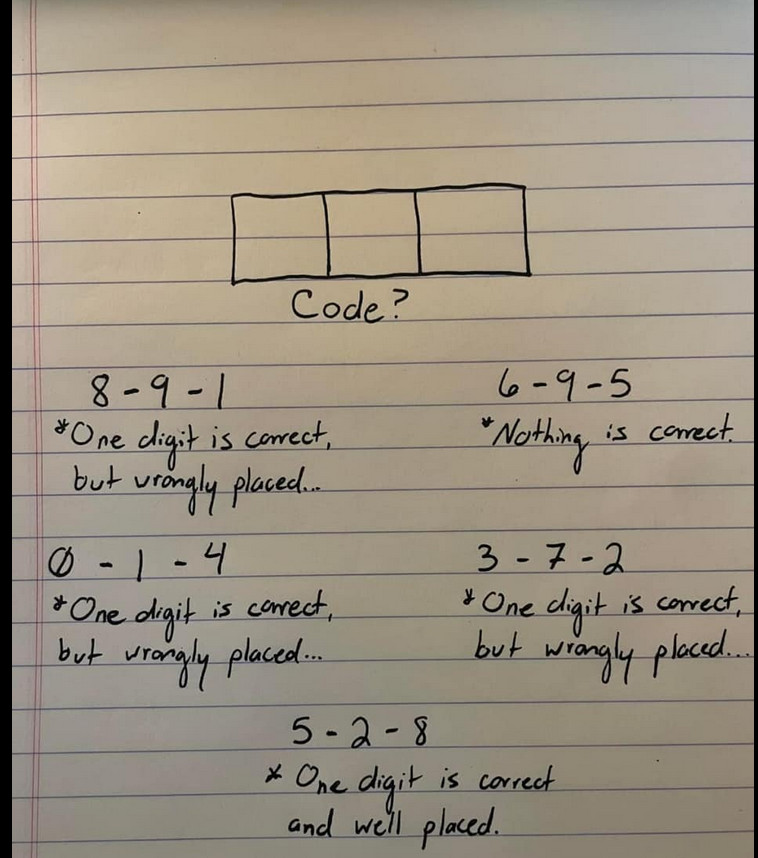 Code?
8-9-1
*One digit is correct,
but wrongly placed...
6-9-5
*Nothing is correct.
0-1-4
*One digit is correct,
but wrongly placed...
3-7-2
*One digit is correct,
but wrongly placed...
5-2-8
* One digit is correct
and well placed.